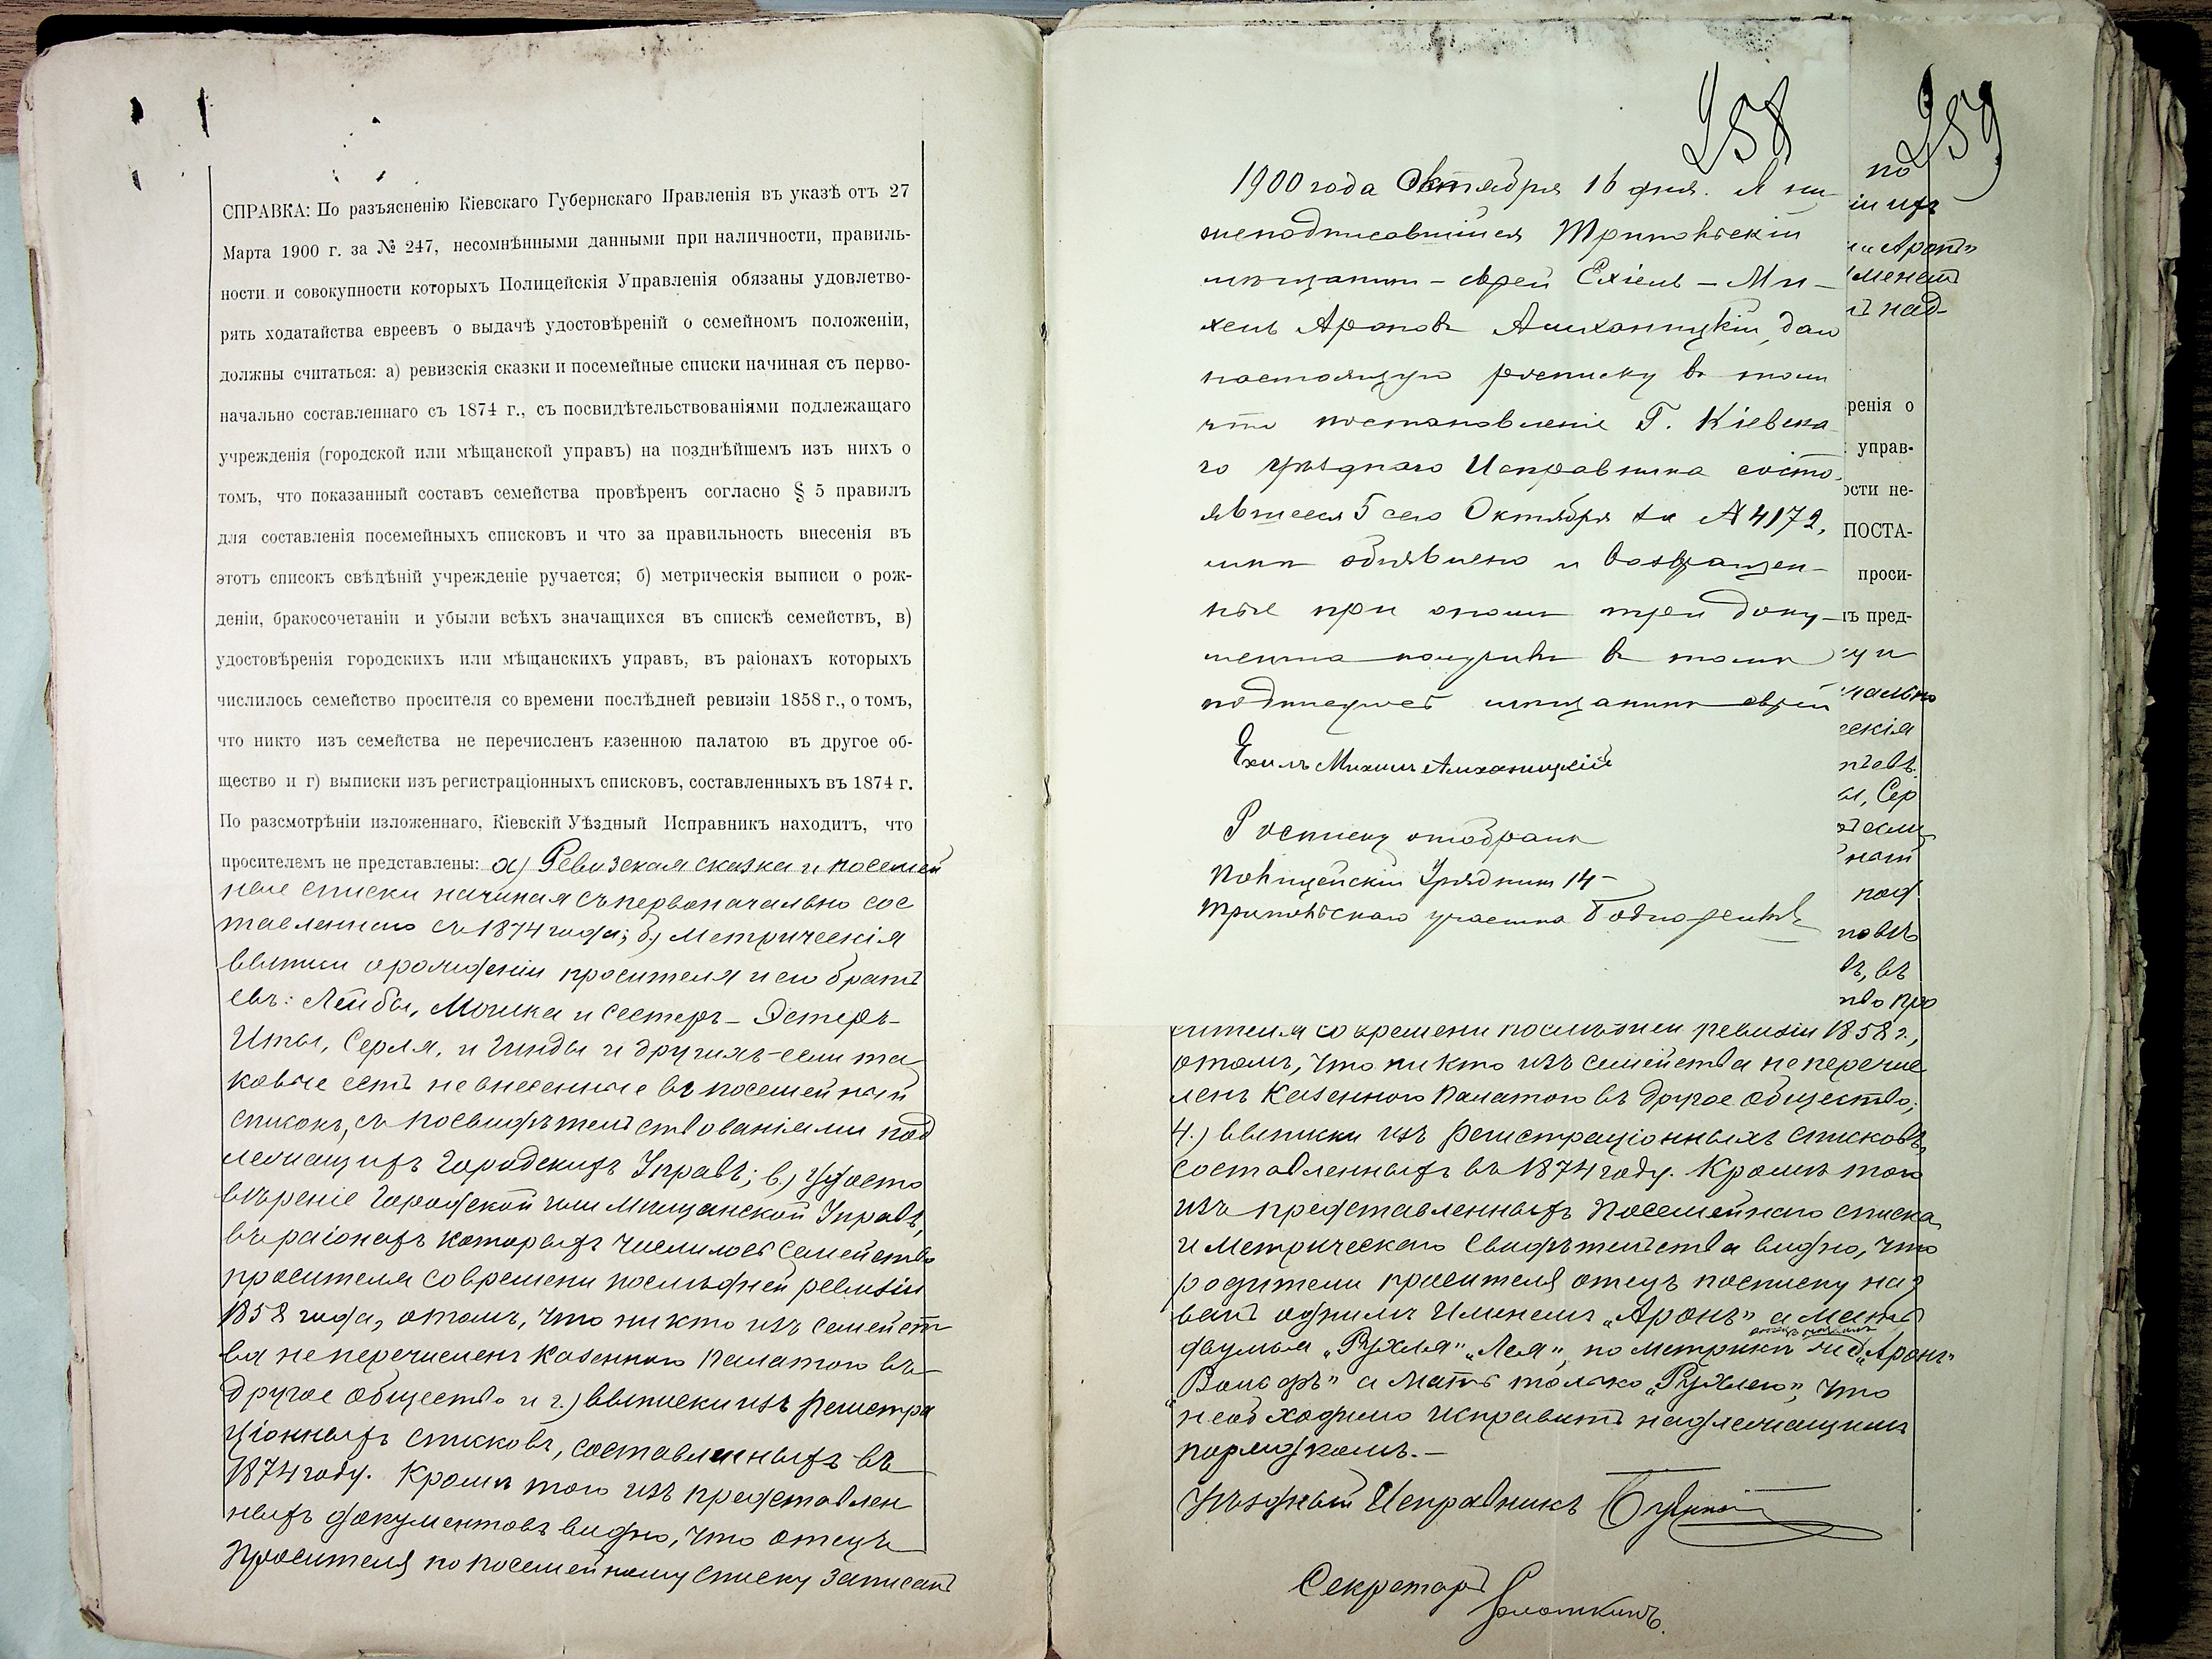 СПРАВКА: По разъясненію Кіевскаго Губернскаго Правленія въ указѣ отъ 27
Марта 1900 г. за № 247, несомнѣнными данными при наличности, правиль-
ности и совокупности которыхъ Полицейскія Управленія обязаны удовлетво-
рять ходатайства евреевъ о выдачѣ удостовѣреній о семейномъ положеніи,
должны считаться: а) ревизскія сказки и посемейные списки начиная съ перво-
начально составленнаго съ 1874 г., съ посвидѣтельствованіями подлежащаго
учрежденія (городской или мѣщанской управъ) на позднѣйшемъ изъ нихъ о
томъ, что показанный составъ семейства провѣренъ согласно § 5 правилъ
для составленія посемейныхъ списковъ и что за правильность внесенія въ
этотъ списокъ свѣдѣній учрежденіе ручается; б) метрическія выписи о рож-
деніи, бракосочетаніи и убыли всѣхъ значащихся въ спискѣ семействъ, в)
удостовѣренія городскихъ или мѣщанскихъ управъ, въ раіонахъ которыхъ
числилось семейство просителя со времени послѣдней ревизіи 1858 г., о томъ,
что никто изъ семейства не перечисленъ казенною палатою въ другое об-
щество и г) выписки изъ регистраціонныхъ списковъ, составленныхъ въ 1874 г.
По разсмотрѣніи изложеннаго, Кіевскій Уѣздный Исправникъ находитъ, что
просителемъ не представлены: а) Ревизская сказка и посемей
ные списки начиная съ первоначально сос
тавленнаго съ 1874 года; б) Метрическія
выписи о рожденіи просителя и его брать
евъ: Лейбы, Мошка и сестеръ - Эстеръ-
Иты, Серля, и Гинды и другихъ - если та
ковые есть не внесенные въ посемейный
списокъ, съ посвидѣтельствованіями под
лежащихъ Городскихъ Управъ; в) Удосто
вѣреніе Городской или Мѣщанской Управъ,
въ раіонахъ которыхъ числилось семейство
просителя со времени послѣдней ревизіи
1858 года, о томъ, что никто изъ семейст
ва не перечисленъ Казенною Палатою въ
другое общество и г.) выписки изъ Регистра
ціонныхъ списковъ, составленныхъ въ
1874 году. Кромѣ того изъ представлен
ныхъ документовъ видно, что отецъ
просителя по посемейному списку записанъ
258
1900 года Октября 16 дня. Я ни-
жеподписавшійся Трипольскій
мѣщанинъ - еврей Ехіель - Ми-
хель Ароновъ Алиханицкій, далъ
настоящую росписку въ томъ
что постановленіе Г. Кіевска-
го Уѣзднаго Исправника состо-
явшееся 5 сего Октября за № 4172,
мнѣ объявлено и возвращен-
ные при ономъ три доку-
мента получилъ въ томъ
подписуюсь мѣщанинъ еврей
Ехилъ Михилъ Алиханицкій
Росписку отобралъ
Полицейскій Урядникъ 14-
Трипольскаго участка
259
по
іи ихъ
"Аронъ"
именемъ
над-
ренія о
управ-
ости не-
ПОСТА-
проси-
ъ пред-
у и
чально
ескія
тьевъ.
ы, Сер
ный
под
новъ
ъ, въ
тво про
сителя со времени послѣдней ревизіи 1858 г.,
о томъ, что никто изъ семейства не перечис
ленъ Казенною Палатою въ другое общество;
4.) выписки изъ Регистраціонныхъ списковъ,
составленныхъ въ 1874 году. Кромѣ того
изъ представленныхъ Посемейнаго списка
и Метрическаго Свидѣтельства видно, что
родители просителя отецъ по списку наз
ванъ однимъ Именемъ "Аронъ" а мать
двумя "Рухля" "Лея", по метрикѣ же "Аронъ"
"Вольфъ" а мать только "Рухлею", что
необходимо исправить надлежащимъ
порядкомъ.-
Уѣздный Исправникъ
Секретарь